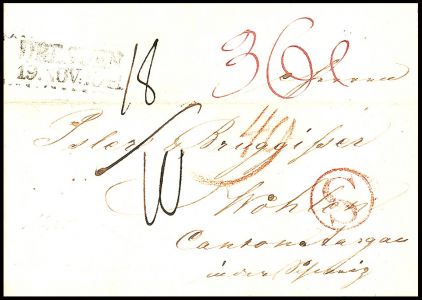 DRESDEN
19. NOV.
18
36
Herren
Isler & Bruggisser
40
10
Wohlen
Canton Aargau
in der Schweiz